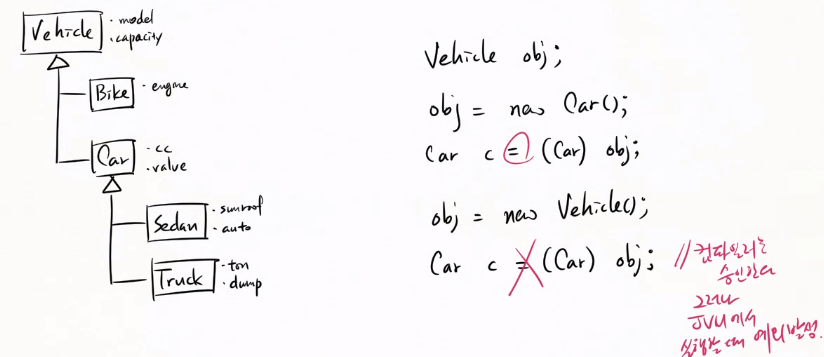 Vehicle
· model
· capacity
Bike
· engine
Car
· cc
· value
Sedan
· sunroof
· auto
Truck
· ton
· dump
Vehicle obj;
obj = new Car();
Car c = (Car) obj;
obj = new Vehicle();
Car c = (Car) obj;
// 컴파일러는
승인한다
그러나
JVM에서
실행할 때 에러 발생.